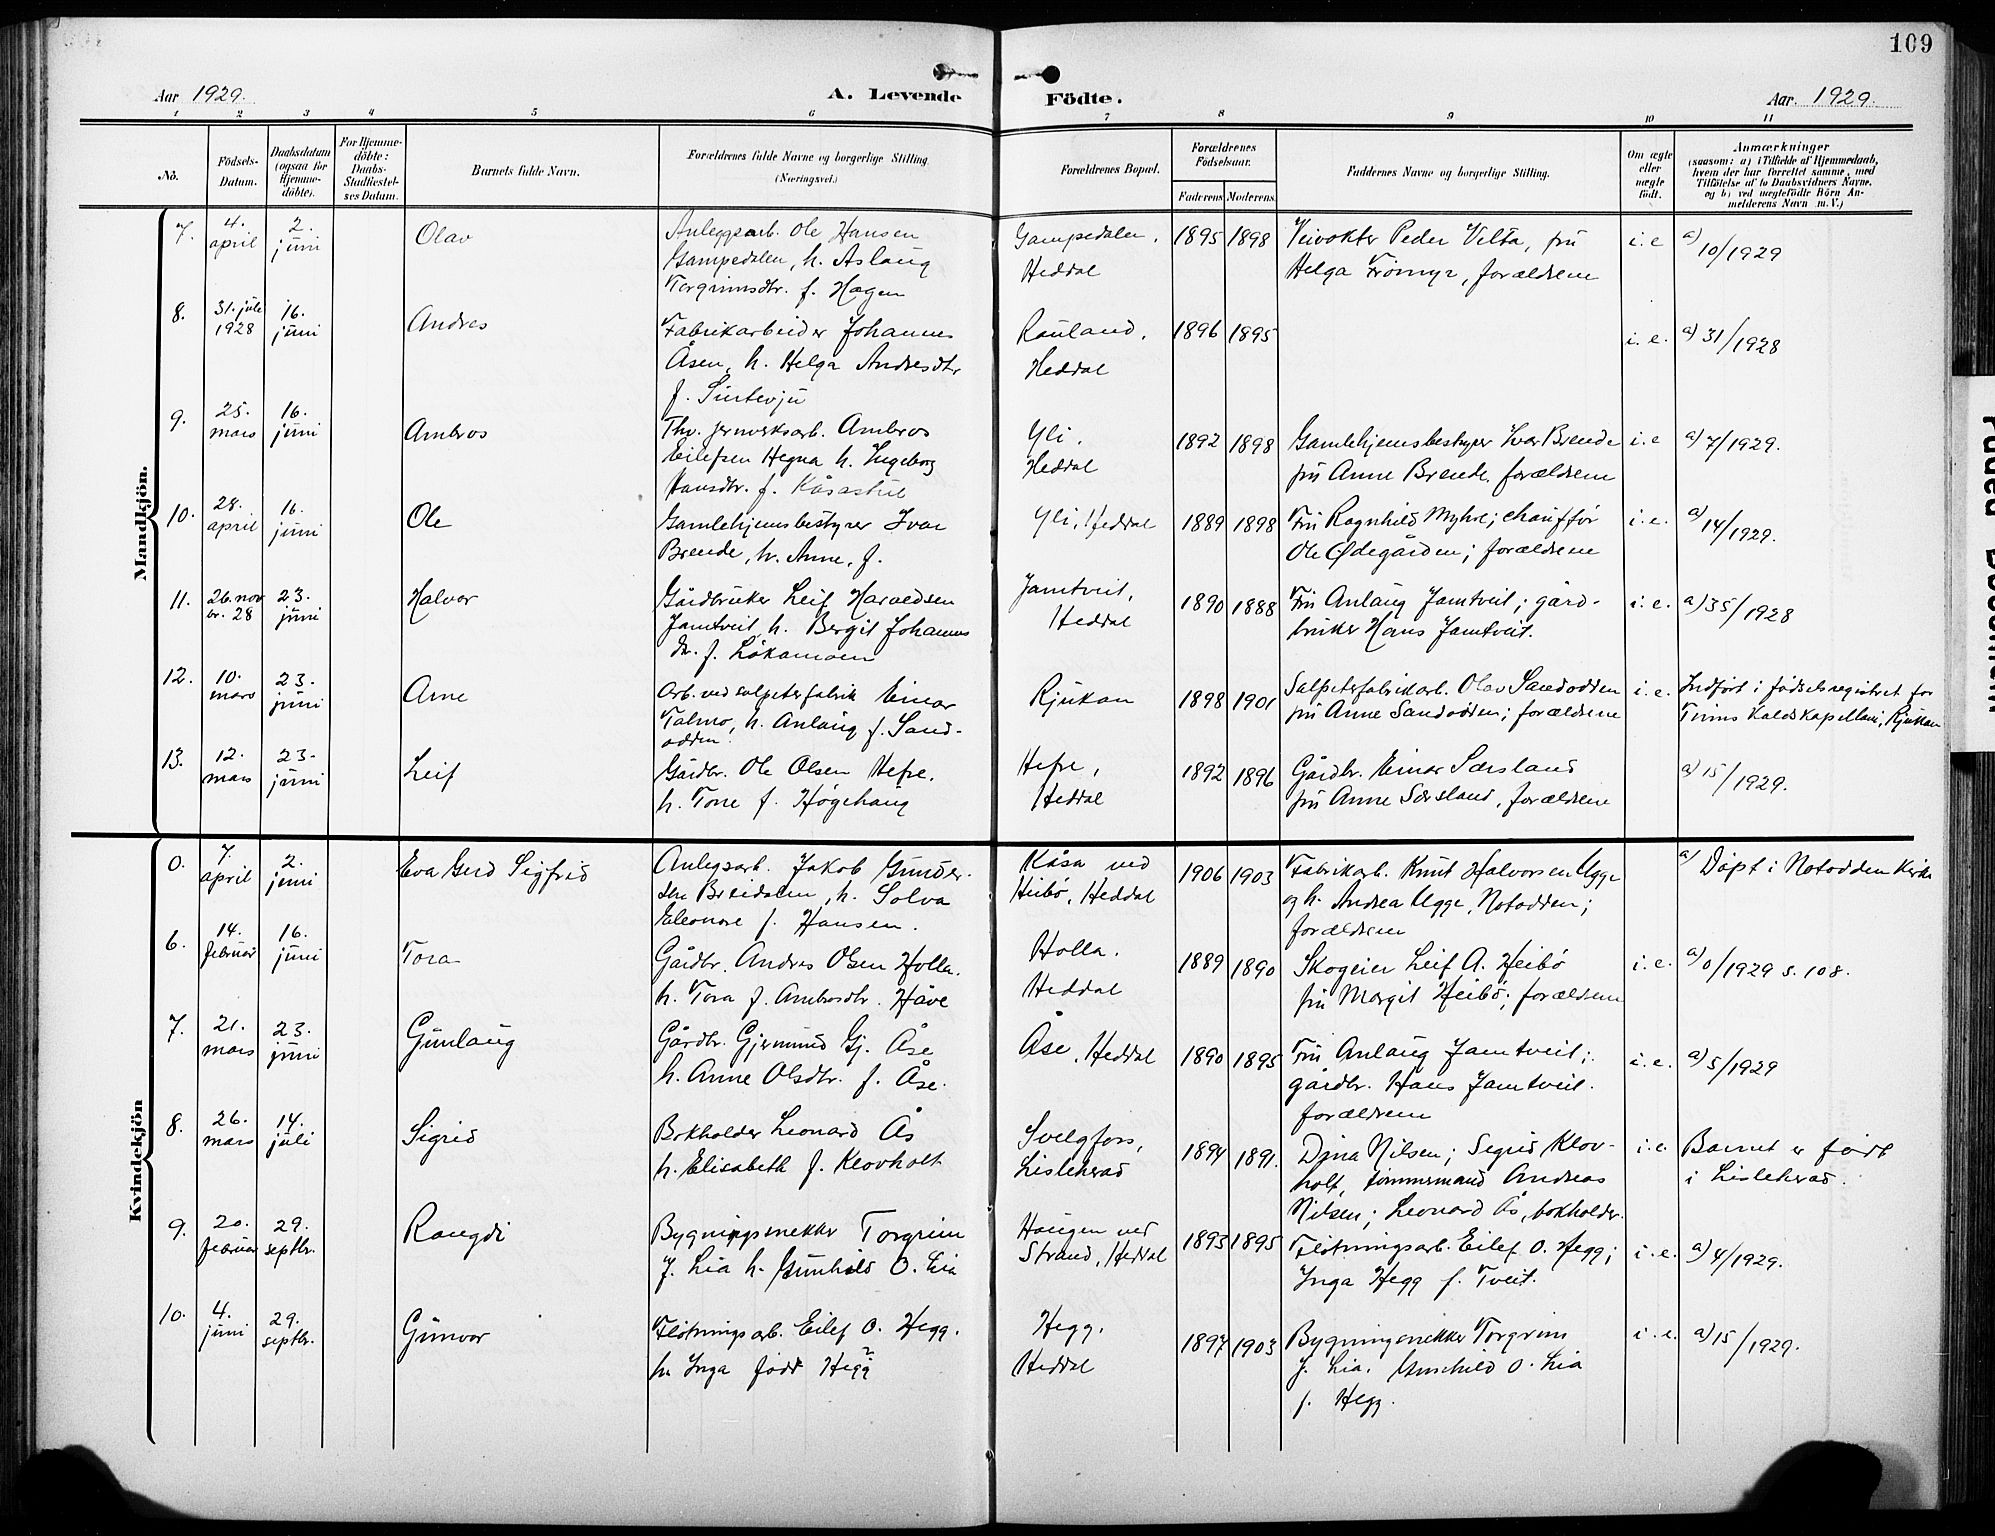 109
Aar 1929.
A. Levende Födte.
Aar 1929.
1 2 3 4 5 6 7 8 9 10 11
No.
Födsels-
Datum.
Daabsdatum
(ogsaa for
Hjemme-
döbte).
For Hjemme-
döbte:
Daabs-
Stadfæstel-
ses Datum.
Barnets fulde Navn.
Forældrenes fulde Navne og borgerlige Stilling.
(Næringsvei.)
Forældrenes Bopæl.
Forældrenes
Födselsaar.
Faderens Moderens
Faddernes Navne og borgerlige Stilling.
Om ægte
eller
uægte
født.
Anmærkninger
(saasom: a) i Tilfælde af Hjemmedaab,
hvem der har forrettet samme, med
Tilföielse af to Daabsvidners Navne,
og b) ved uægtefödte Börn An-
melderens Navn m. V.)
Mandkjön.
7.
4.
april
2.
juni
Olav
Anleggsarb. Ole Hansen
Gampedalen, h. Aslaug
Torgrimsdtr. f. Hagen
Gampedalen,
Heddal
1895 1898
Veivokter Peder Velta, fru
Helga Frömyr, forældrene
i. e
a) 10/1929
8.
31. juli
1928
16.
juni
Andres
Fabrikarbeider Johannes
Åsen, h. Helga Andresdtr
f. Sintevju
Rauland,
Heddal
1896 1895
i. e.
a) 31/1928
9.
25.
mars
16.
juni
Ambros
Thv. jernverksarb. Ambros
Eilefsen Hegna h. Ingeborg
Hansdtr. f. Kåsastul
Yli,
Heddal
1892 1898
Gamlehjemsbestyrer Ivar Brende
fru Anne Brende, forældrene
i. e
a) 7/1929.
10.
28.
april
16.
juni
Ole
Gamlehjemsbestyrer Ivar
Brende, h. Anne, f.
Yli, Heddal
1889 1898
Fru Ragnhild Myhre; chaufför
Ole Ødegården; forældrene
i. e.
a) 14/1929.
11.
26. nov
br. 28
23.
juni
Halvor
Gårdbruker Leif Haraldsen
Jamtveit, h. Bergit Johannes
dtr. f. Løkamoen
Jamtveit,
Heddal
1890 1888
Fru Anlaug Jamtveit; gård-
bruker Hans Jamtveit.
i. e.
a) 35/1928
12.
10.
mars
23.
juni
Arne
Arb. ved salpeterfabrik Einar
Talmo, h. Anlaug f. Sand-
odden.
Rjukan
1898 1901
Salpeterfabrikarb. Olav Sandodden
fru Anne Sandodden; forældrene
i. e.
Indfört i födselsregistret for
Tinns Kaldskapellani, Rjukan
13.
12.
mars
23.
juni
Leif
Gårdbr. Ole Olsen Hefre,
h. Tone f. Högehaug
Hefre,
Heddal
1892 1896
Gårdbr. Einar Sørsland
fru Anne Sørsland, forældrene
a) 15/1929.
Kvindekjön
0.
7.
april
2.
juni
Eva Gerd Sigfrid
Anlegsarb. Jakob Gunder-
sen Breidalen, h. Solva
Eleonore f. Hansen.
Kåsa ved
Heibö, Heddal
1906 1903
Fabrikarb. Knut Halvorsen Ugge
og h. Andrea Ugge, Notodden;
forældrene
a) Döpt i Notodden Kirke
6.
14.
februar
16.
juni
Tora
Gårdbr. Andres Olsen Holla.
h. Tora f. Ambrosdtr. Håve
Holla.
Heddal
1889 1890
Skogeier Leif A. Heibö
fru Margit Heibö; forældrene
i. e.
a) 0/1929 s. 108.
7.
21.
mars
23.
juni
Gunlaug
Gårdbr. Gjermund Gj. Åse
h. Anne Olsdtr. f. Åse.
Åse, Heddal
1890 1895
Fru Anlaug Jamtveit;
gårdbr. Hans Jamtveit.
forældrene
i. e.
a) 5/1929
8.
26.
mars
14.
juli
Sigrid
Bokholder Leonard Ås
h. Elisabeth f. Klovholt
Svelgfors,
Lisleherad
1894 1891.
Dina Nilsen; Sigrid Klov-
holt, tömmermand Andreas
Nilsen; Leonard Ås, bokholder.
i. e.
Barnet er födt
i Lisleherad.
9.
20.
februar
29.
septbr.
Rangdi
Bygningssnekker Torgrim
J. Lia h. Gunhild O. Lia
Haugen ved
Strand, Heddal
1893 1895
Flötningsarb. Eilef O. Hegg;
Inga Hegg f. Tveit.
i. e.
a) 4/1929.
10.
4.
juni
29.
septbr.
Gunvor
Flötningsarb. Eilef O. Hegg.
h. Inga födt Hegg ?
Hegg,
Heddal
1897 1903
Bygningssnekker Torgrim
J. Lia, Gunhild O. Lia
f. Hegg.
i. e.
a) 15/1929.